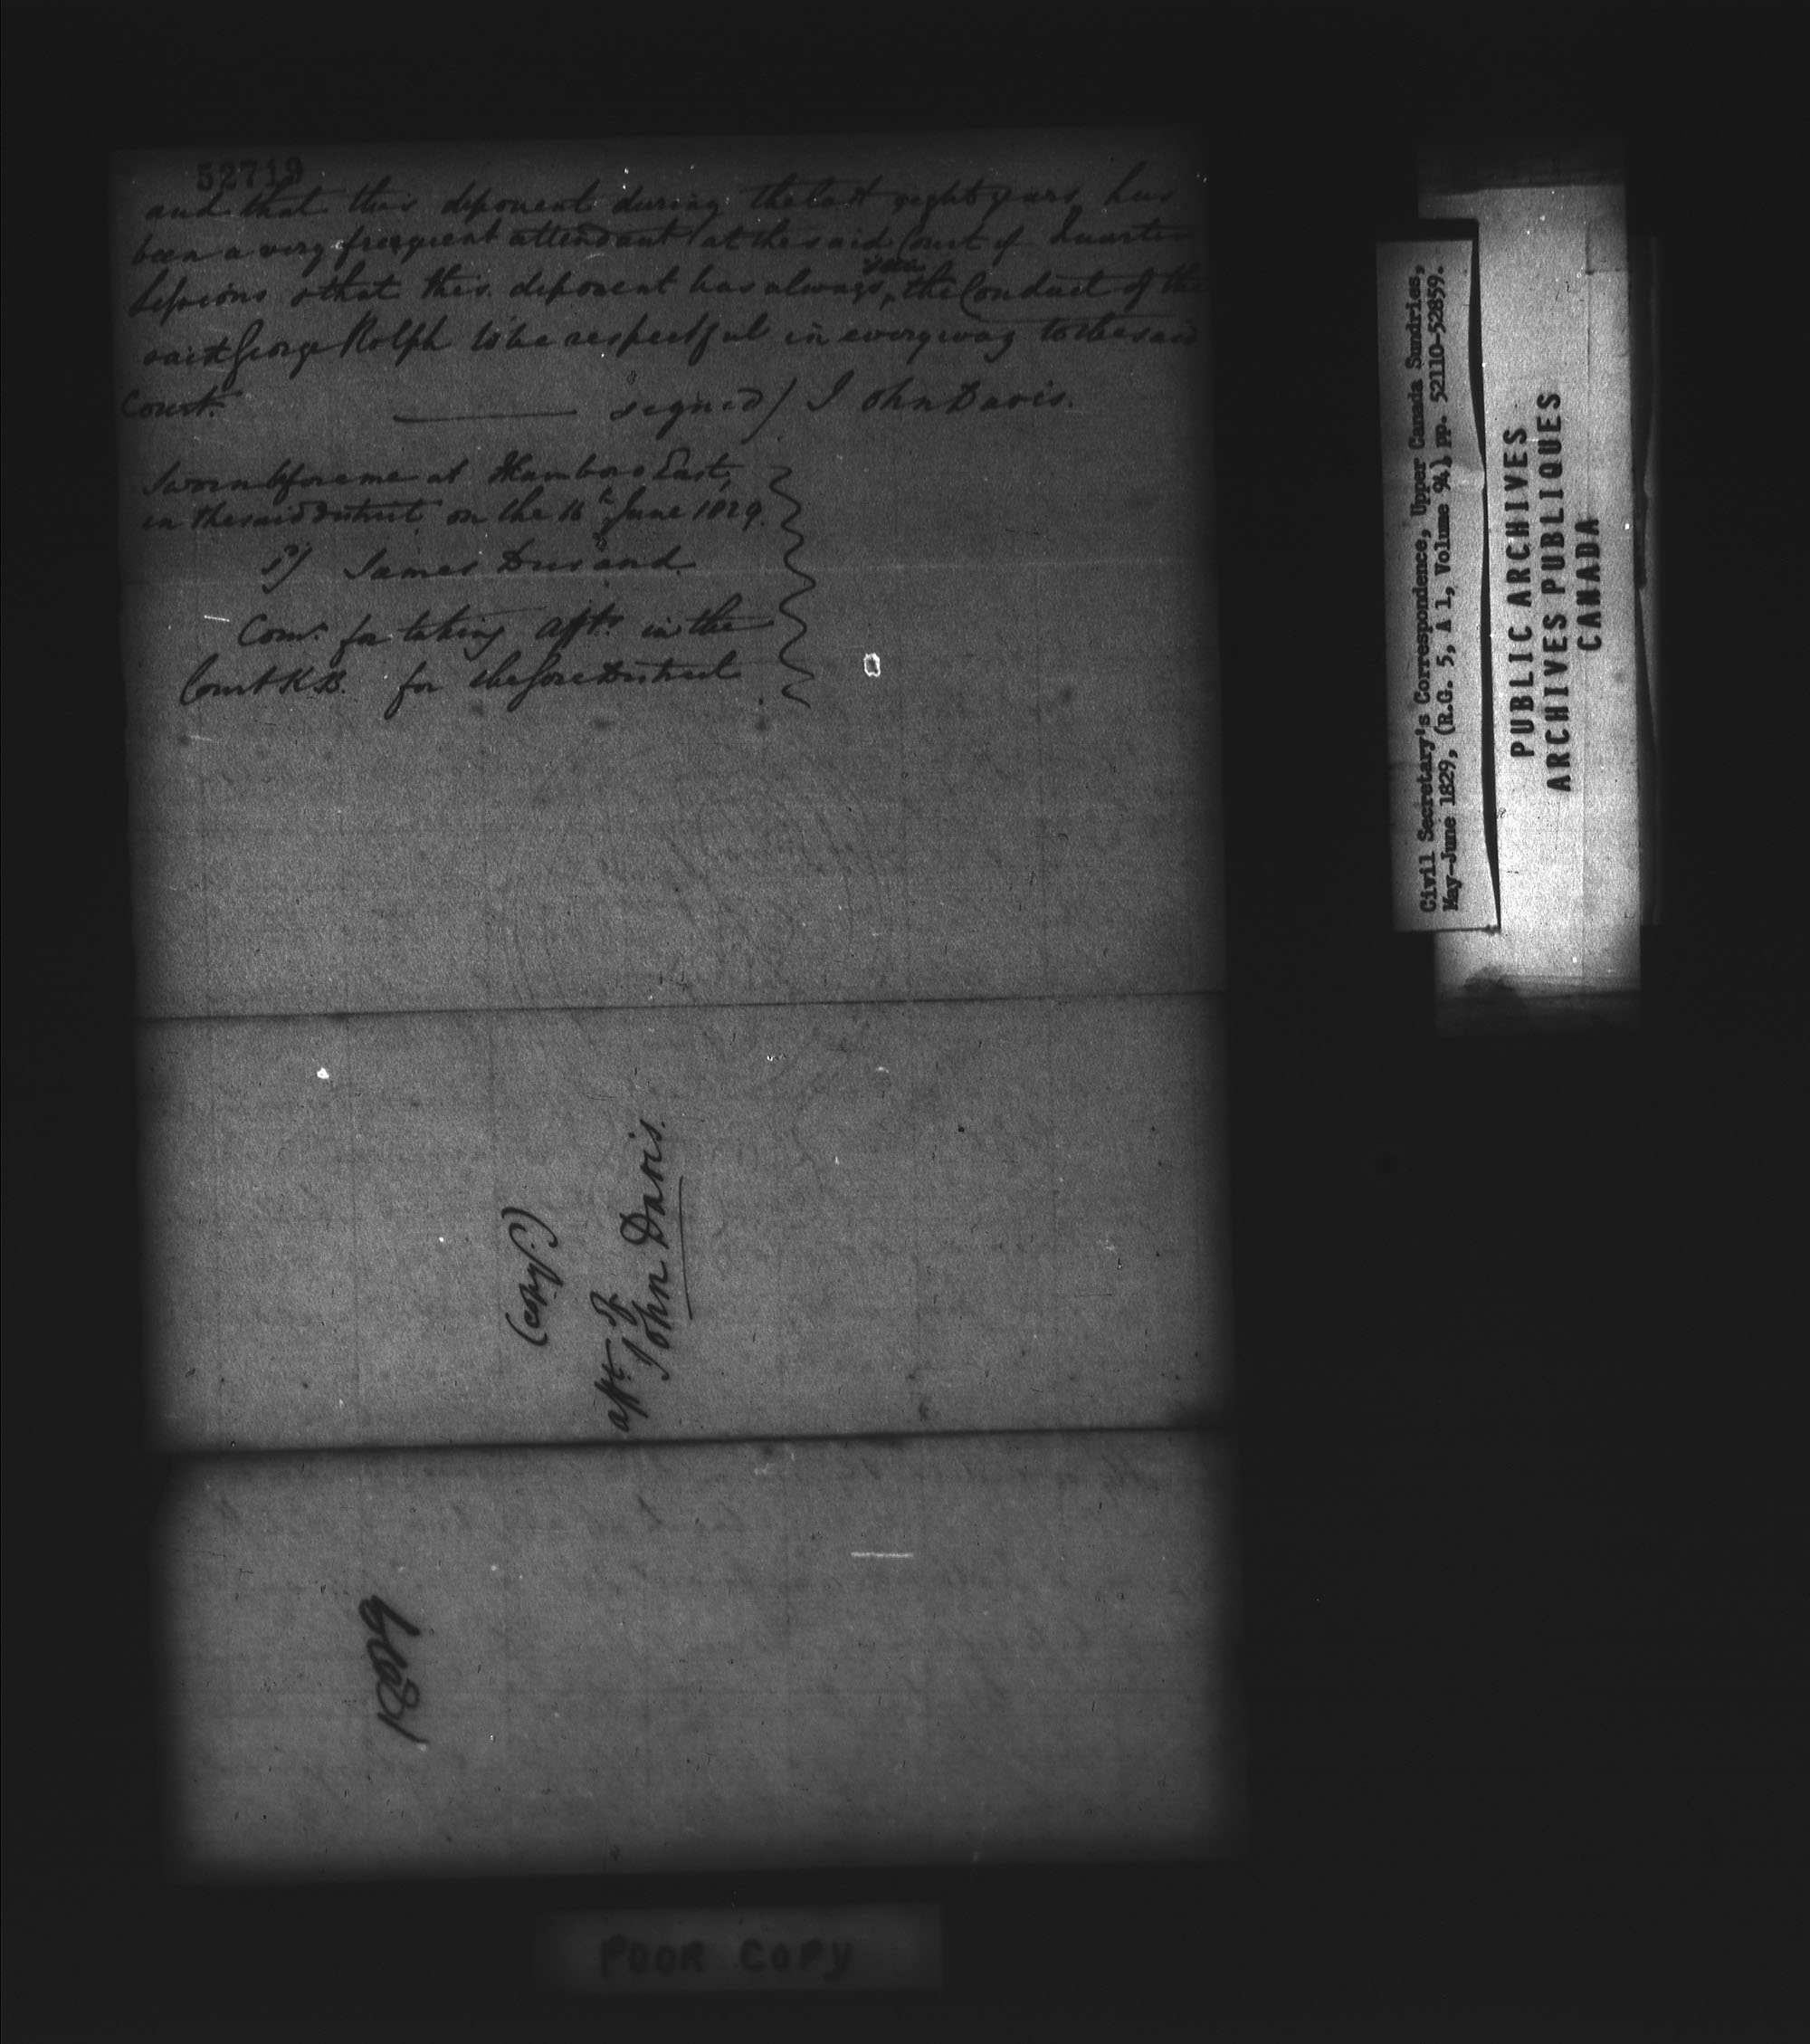 52719
and that this deponent during the last eight years has
been a very frequent attendant at the said Court of Quarter
Sessions & that this deponent has always seen the Conduct of the
said George Rolph to be respectful in every way to the said
Court. signed / John Davis.
Sworn before me at Flamboro East,
in the said District on the 16th June 1829.
s/ James Durand
Comr. for taking afft. in the
Court K.B. for the Gore District
(copy.)
afft. of
John Davis.
1829
Civil Secretary's Correspondence, Upper Canada Sundries,
May-June 1829, (R.G. 5, A 1, Volume 94) pp. 52110-52859.
PUBLIC ARCHIVES
ARCHIVES PUBLIQUES
CANADA
POOR COPY